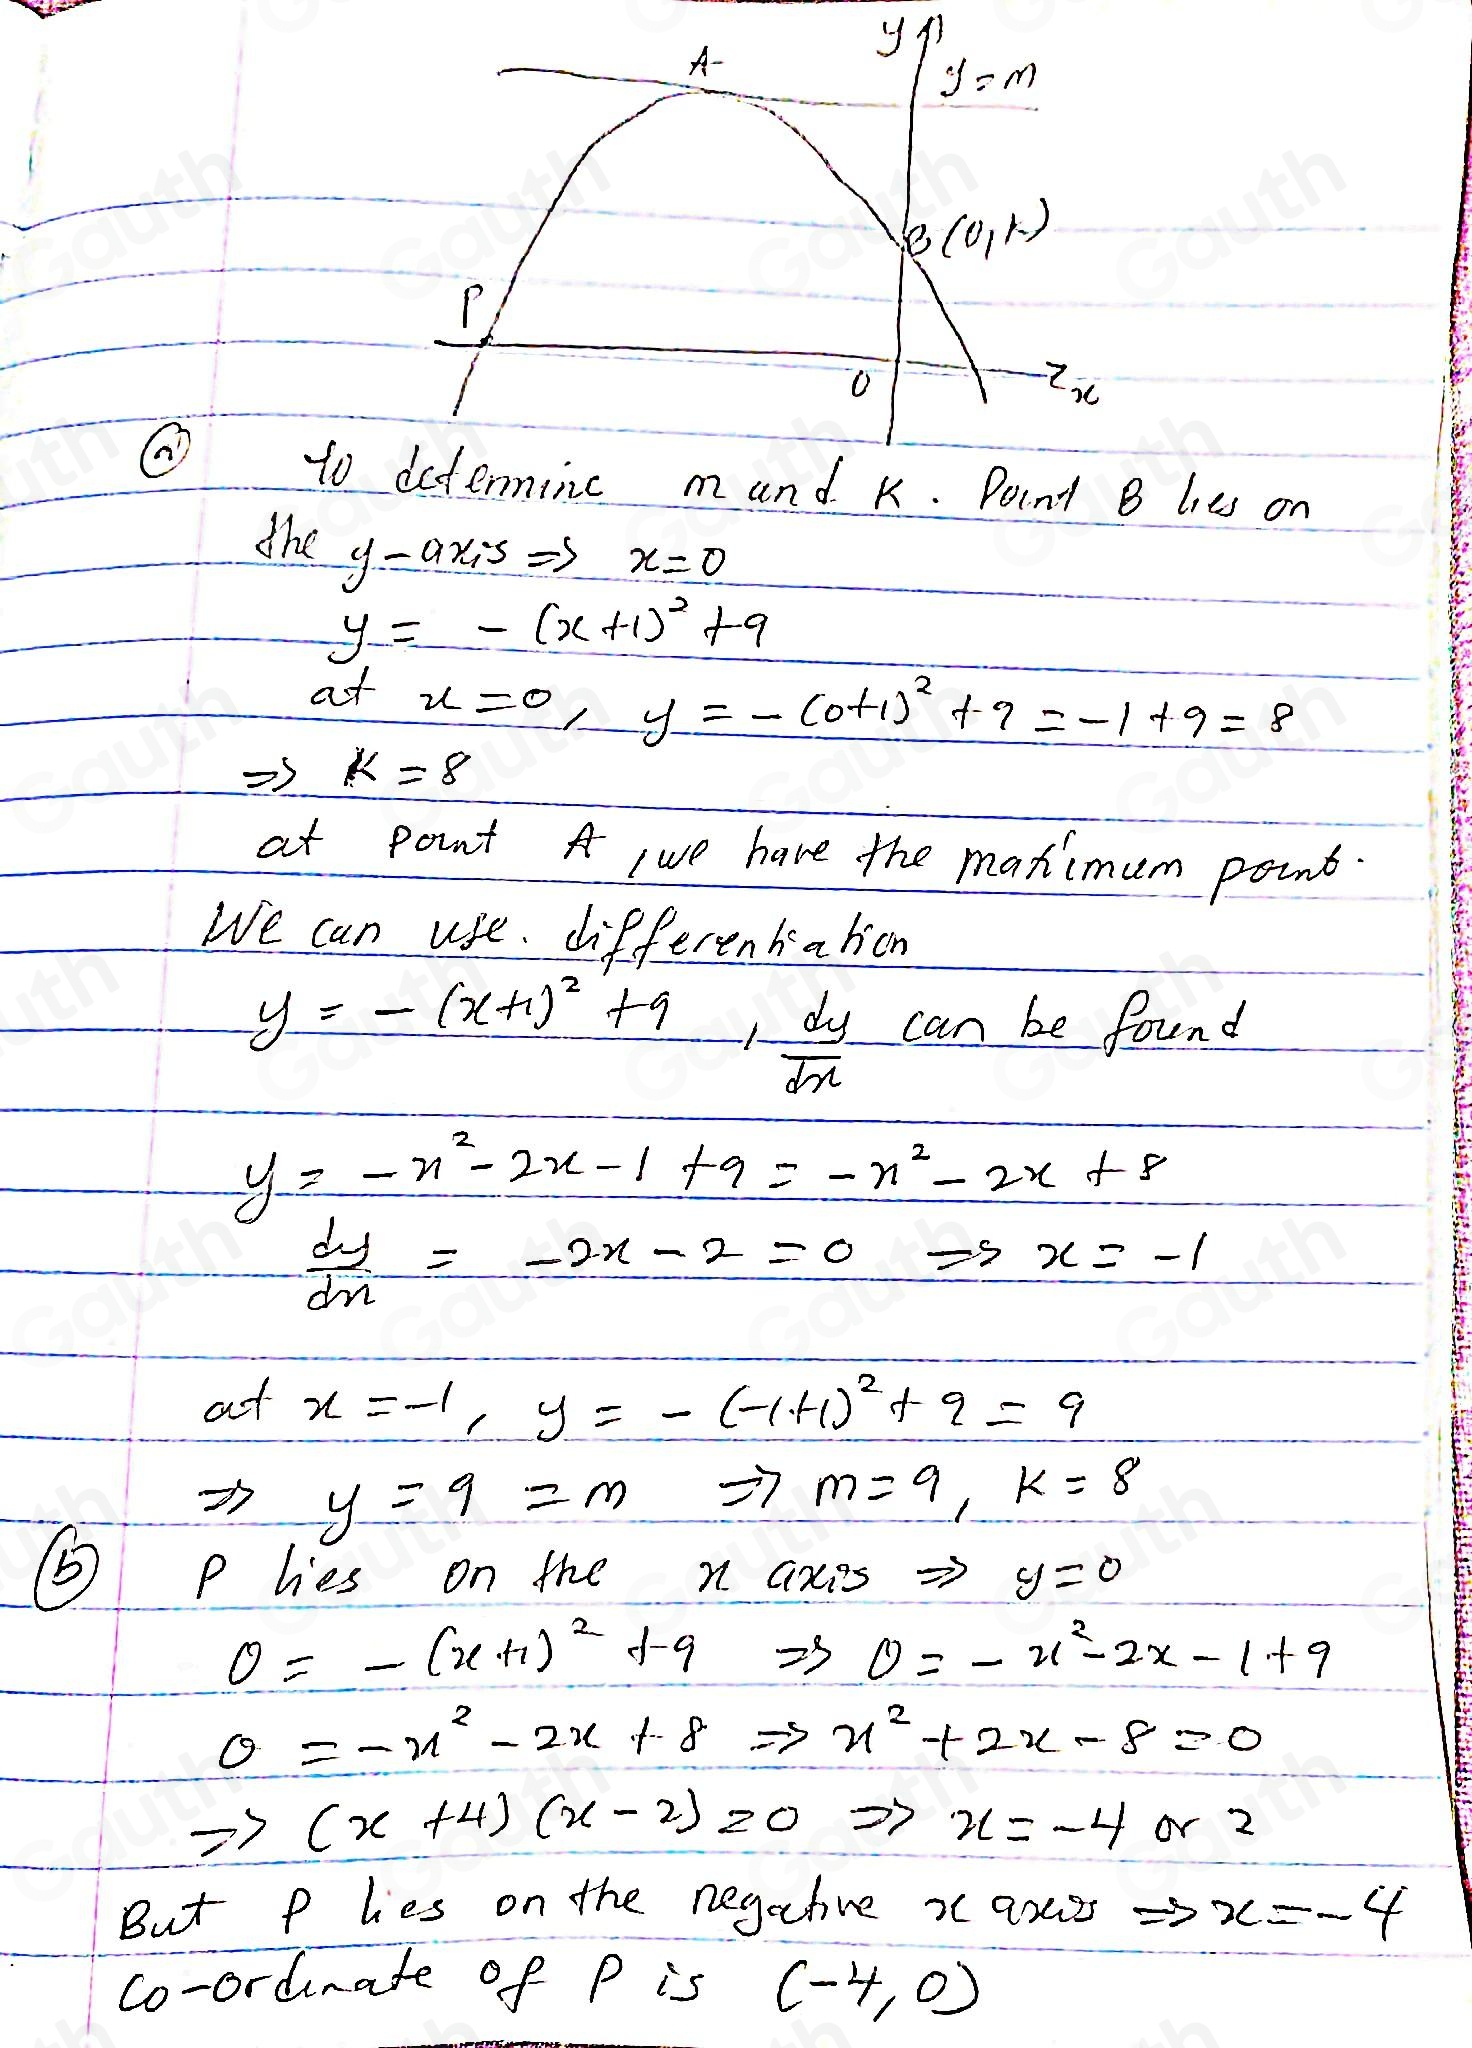 y
A
y=m
B(0,k)
P
O
x
(a) to determine m and K. Point B lies on
the y-axis => x=0
y = -(x+1)² +9
at x=0, y = -(0+1)² +9 = -1+9 = 8
=> K=8
at point A, we have the maximum point.
We can use. differentiation
y = -(x+1)² +9, dy/dx can be found
y = -x²-2x-1+9 = -x²-2x+8
dy/dx = -2x-2 = 0 => x=-1
at x=-1, y = -(-1+1)²+9 = 9
=> y=9=m => m=9, K=8
(b) P lies on the x axis => y=0
0 = -(x+1)² +9 => 0 = -x²-2x-1+9
0 = -x²-2x+8 => x²+2x-8=0
=> (x+4)(x-2)=0 => x=-4 or 2
But P lies on the negative x axis => x=-4
co-ordinate of P is (-4,0)
Gauth